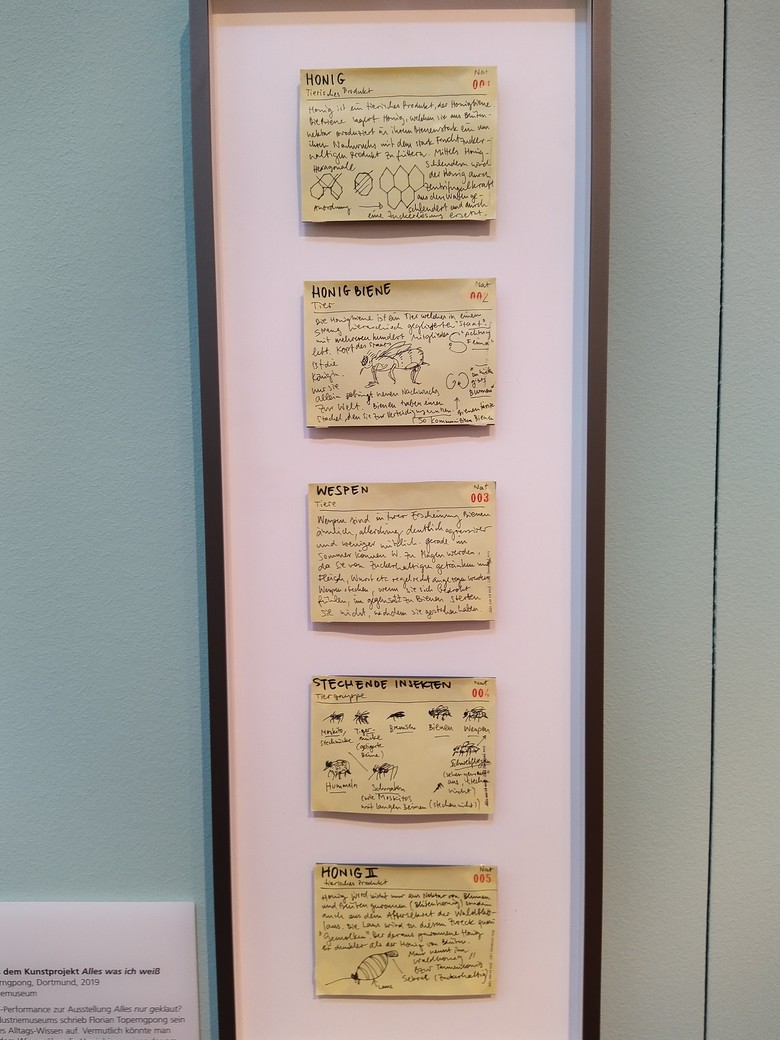 HONIG
Nat
001
Tierisches Produkt
Honig ist ein tierisches Produkt, der Honigbiene
Die Biene lagert Honig, welchen sie aus Blüten-
nektar produziert in ihrem Bienenstock ein um
ihren Nachwuchs mit dem stark
haltigen Produkt zu füttern. Mittels Honig-
Hexagonale
schleudern wird
der Honig durch
Zentrifugalkraft
aus den Waben ge-
Anordnung
schleudert und durch
eine Zuckerlösung ersetzt.
HONIG BIENE
Nat
002
Tier
Die Honigbiene ist ein Tier welches in einem
streng hierarchisch gegliederten "Staat"
mit mehreren hundert Mitgliedern
"Achtung
Feind"
lebt. Kopf des Staats
ist die
Königin.
nur sie
allein gebringt neuen Nachwuchs
Blumen"
zur Welt. Bienen haben einen
Stachel, den sie zur Verteidigung
so kommunizieren Bienen
WESPEN
Nat
003
Tiere
Wespen sind in ihrer Erscheinung Bienen
ähnlich, allerdings deutlich aggressiver
und weniger nützlich gerade im
Sommer können W. zu Plagen werden,
da sie von zuckerhaltigen getränken und
Fleisch, Wurst etc regelrecht angezogen werden
Wespen stechen, wenn sie sich bedroht
fühlen, im gegensatz zu Bienen sterben
sie nicht, nachdem sie gestochen haben
STECHENDE INSEKTEN
Nat
004
Tiergruppe
Moskito,
Stechmücke
Tiger-
mücke
(geringelte
Beine)
Bremsen
Bienen
Wespen
Hummeln
Schnaken
(wie Moskitos
mit langen Beinen (stechen nicht)
Schwebfliegen
(sehen
aus, stechen
nicht)
HONIG II
Nat
005
tierisches Produkt
Honig wird nicht nur aus Nektar von Blumen
und Blüten gewonnen (Blütenhonig) sondern
auch aus dem Aftersekret der Waldblatt-
laus. Die Laus wird zu diesem Zweck quasi
"Gemolken" Der daraus gewonnene Honig
ist dunkler als der Honig von Blüten.
Man nennt ihn
Waldhonig
bzw Tannenhonig
Sekret (Zuckerhaltig)
Laus
dem Kunstprojekt Alles was ich weiß
rngpong, Dortmund, 2019
emuseum
-Performance zur Ausstellung Alles nur geklaut?
dustriemuseums schrieb Florian Toperngpong sein
s Alltags-Wissen auf. Vermutlich könnte man